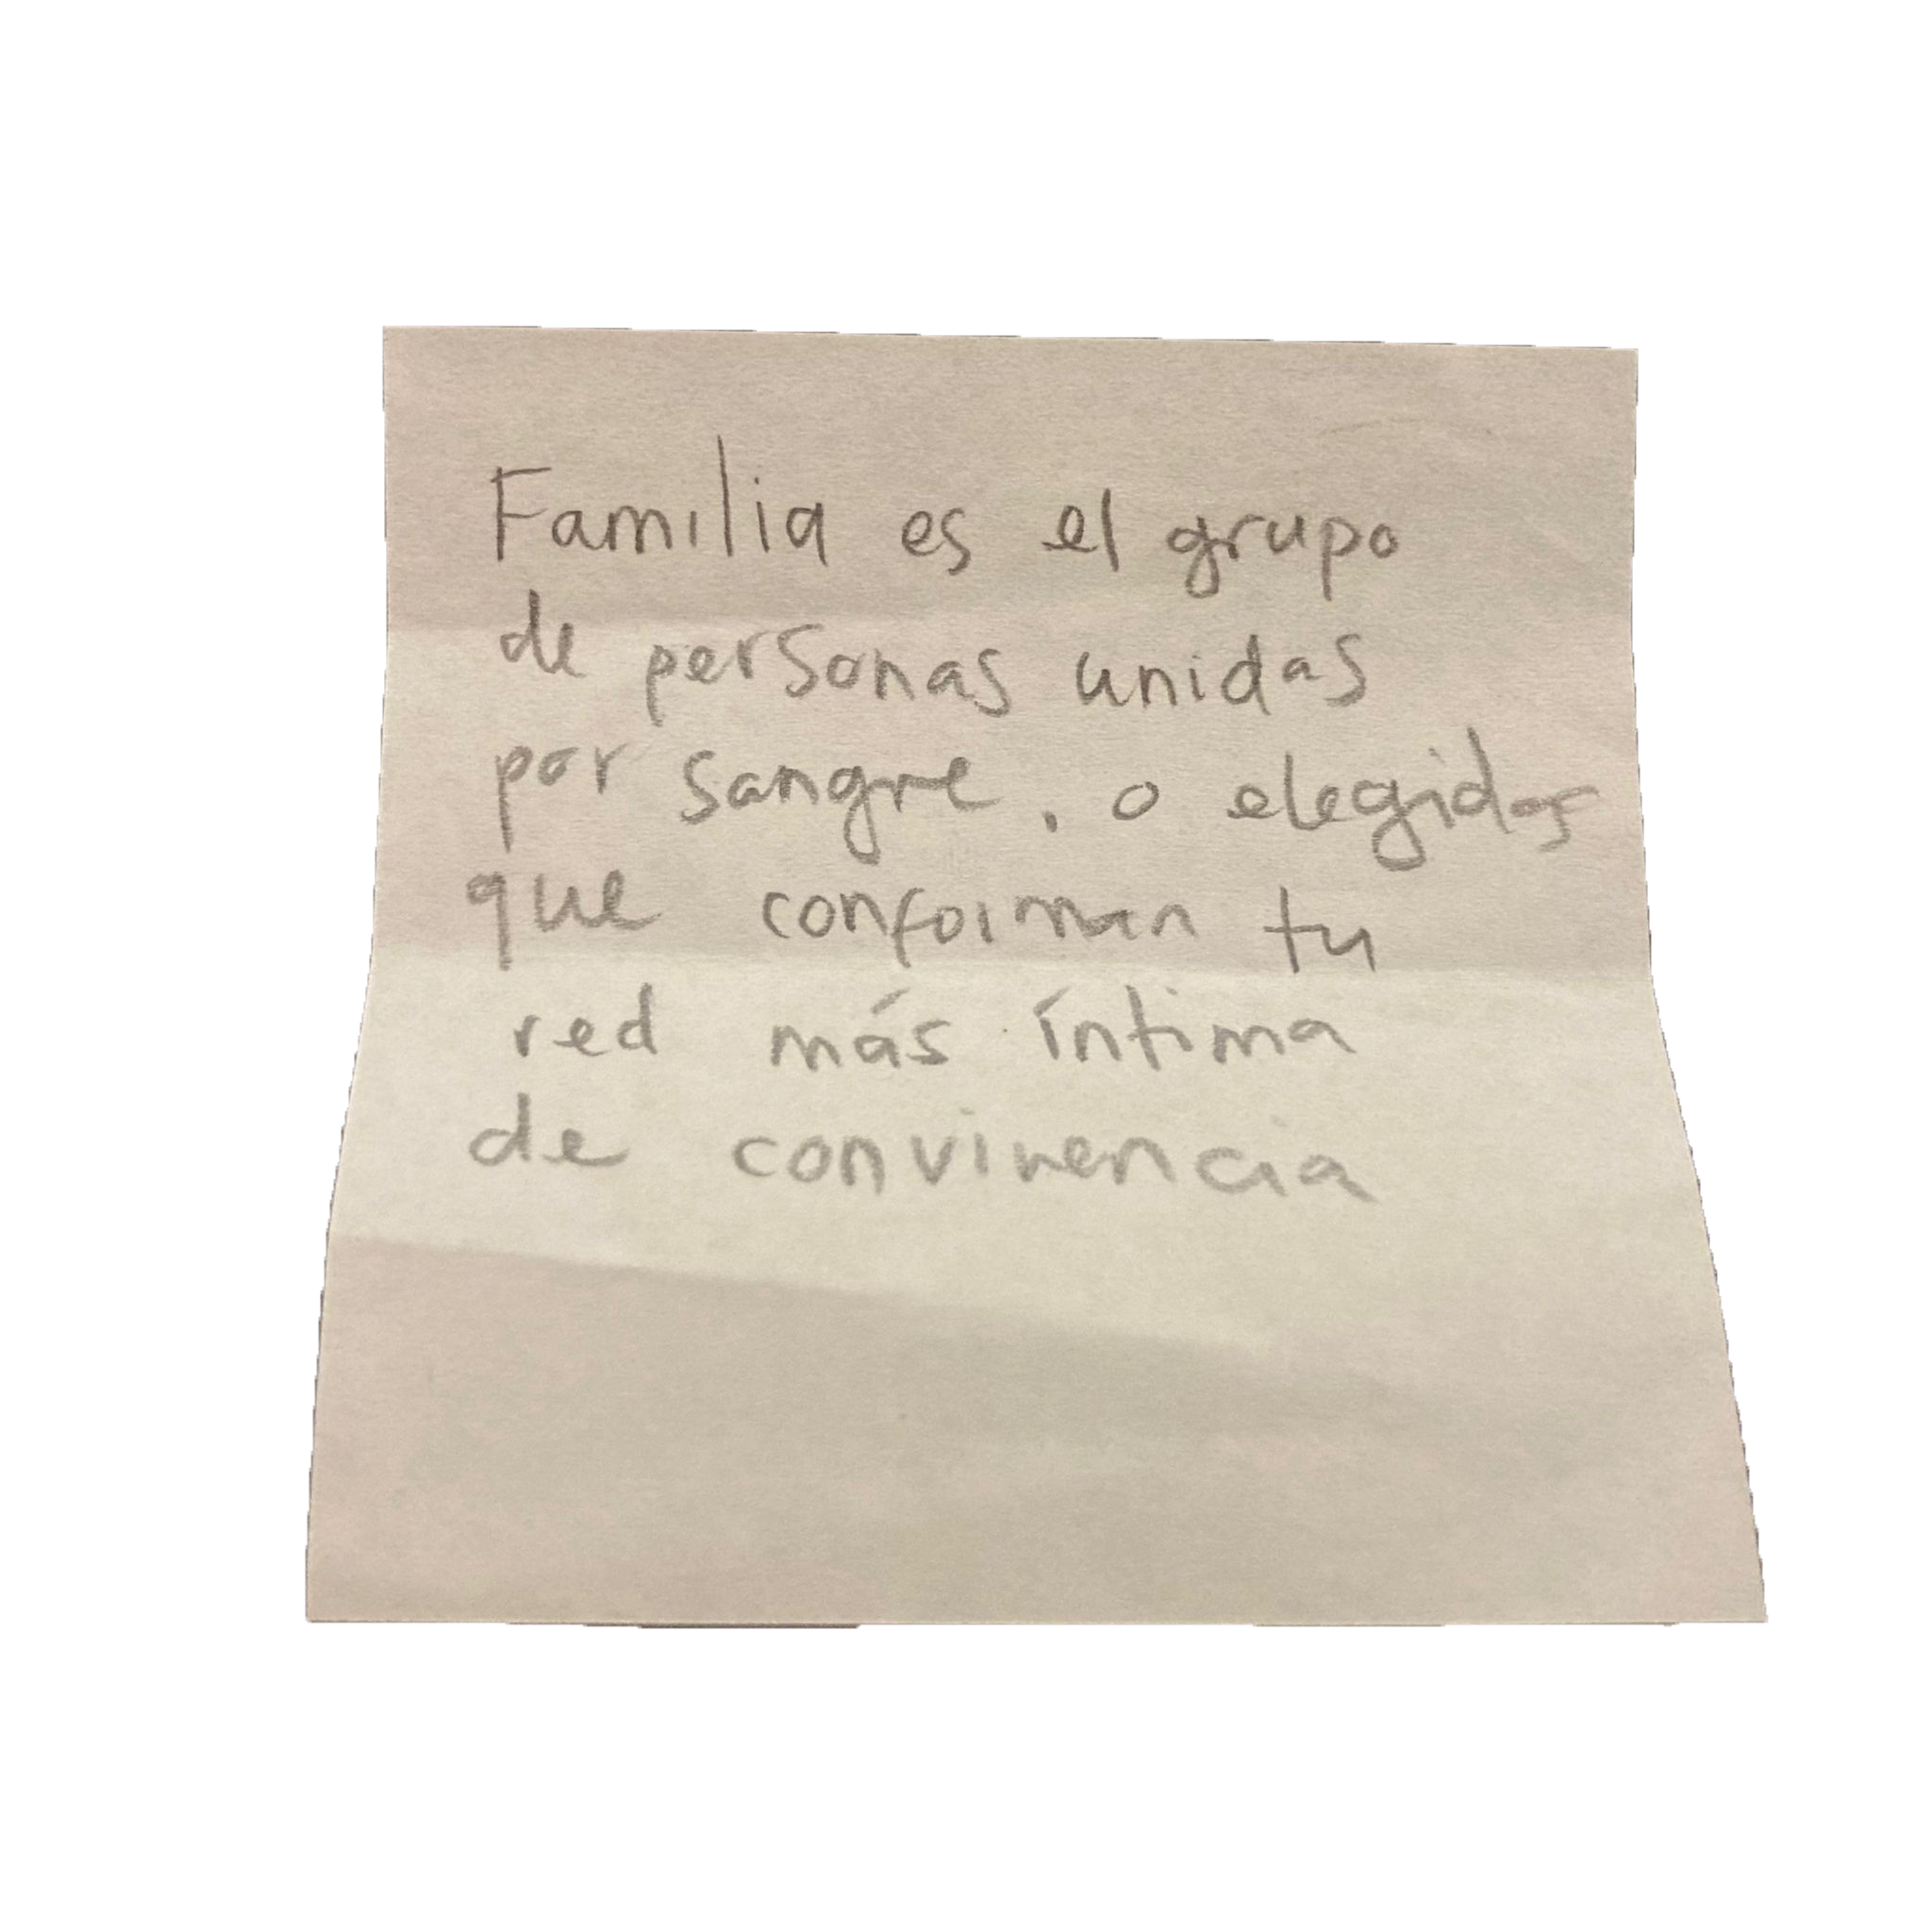 Familia es el grupo
de personas unidas
por sangre, o elegidas
que conforman tu
red más íntima
de convivencia